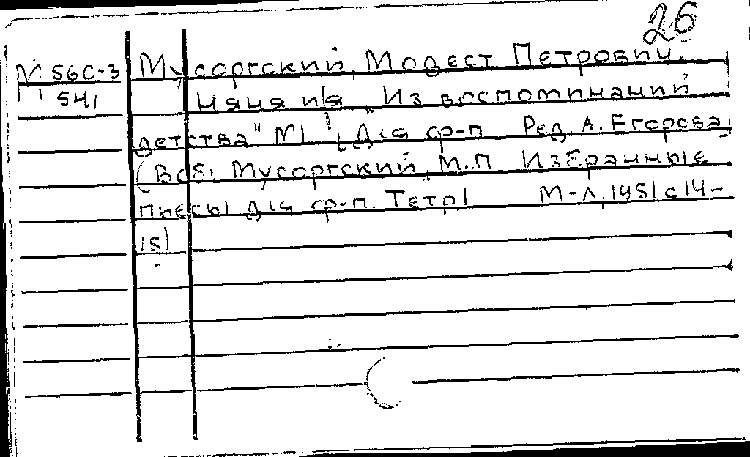 26
М 56С-3 Мусоргский, Модест Петрович.
541 Няня и я „Из воспоминаний
детства" №1 [Для ф-п Ред. А. Егорова
(В сб: Мусоргский, М.П Избранные
пьесы для ф-п. Тетр1 М-Л, 1951 с 14-
15)